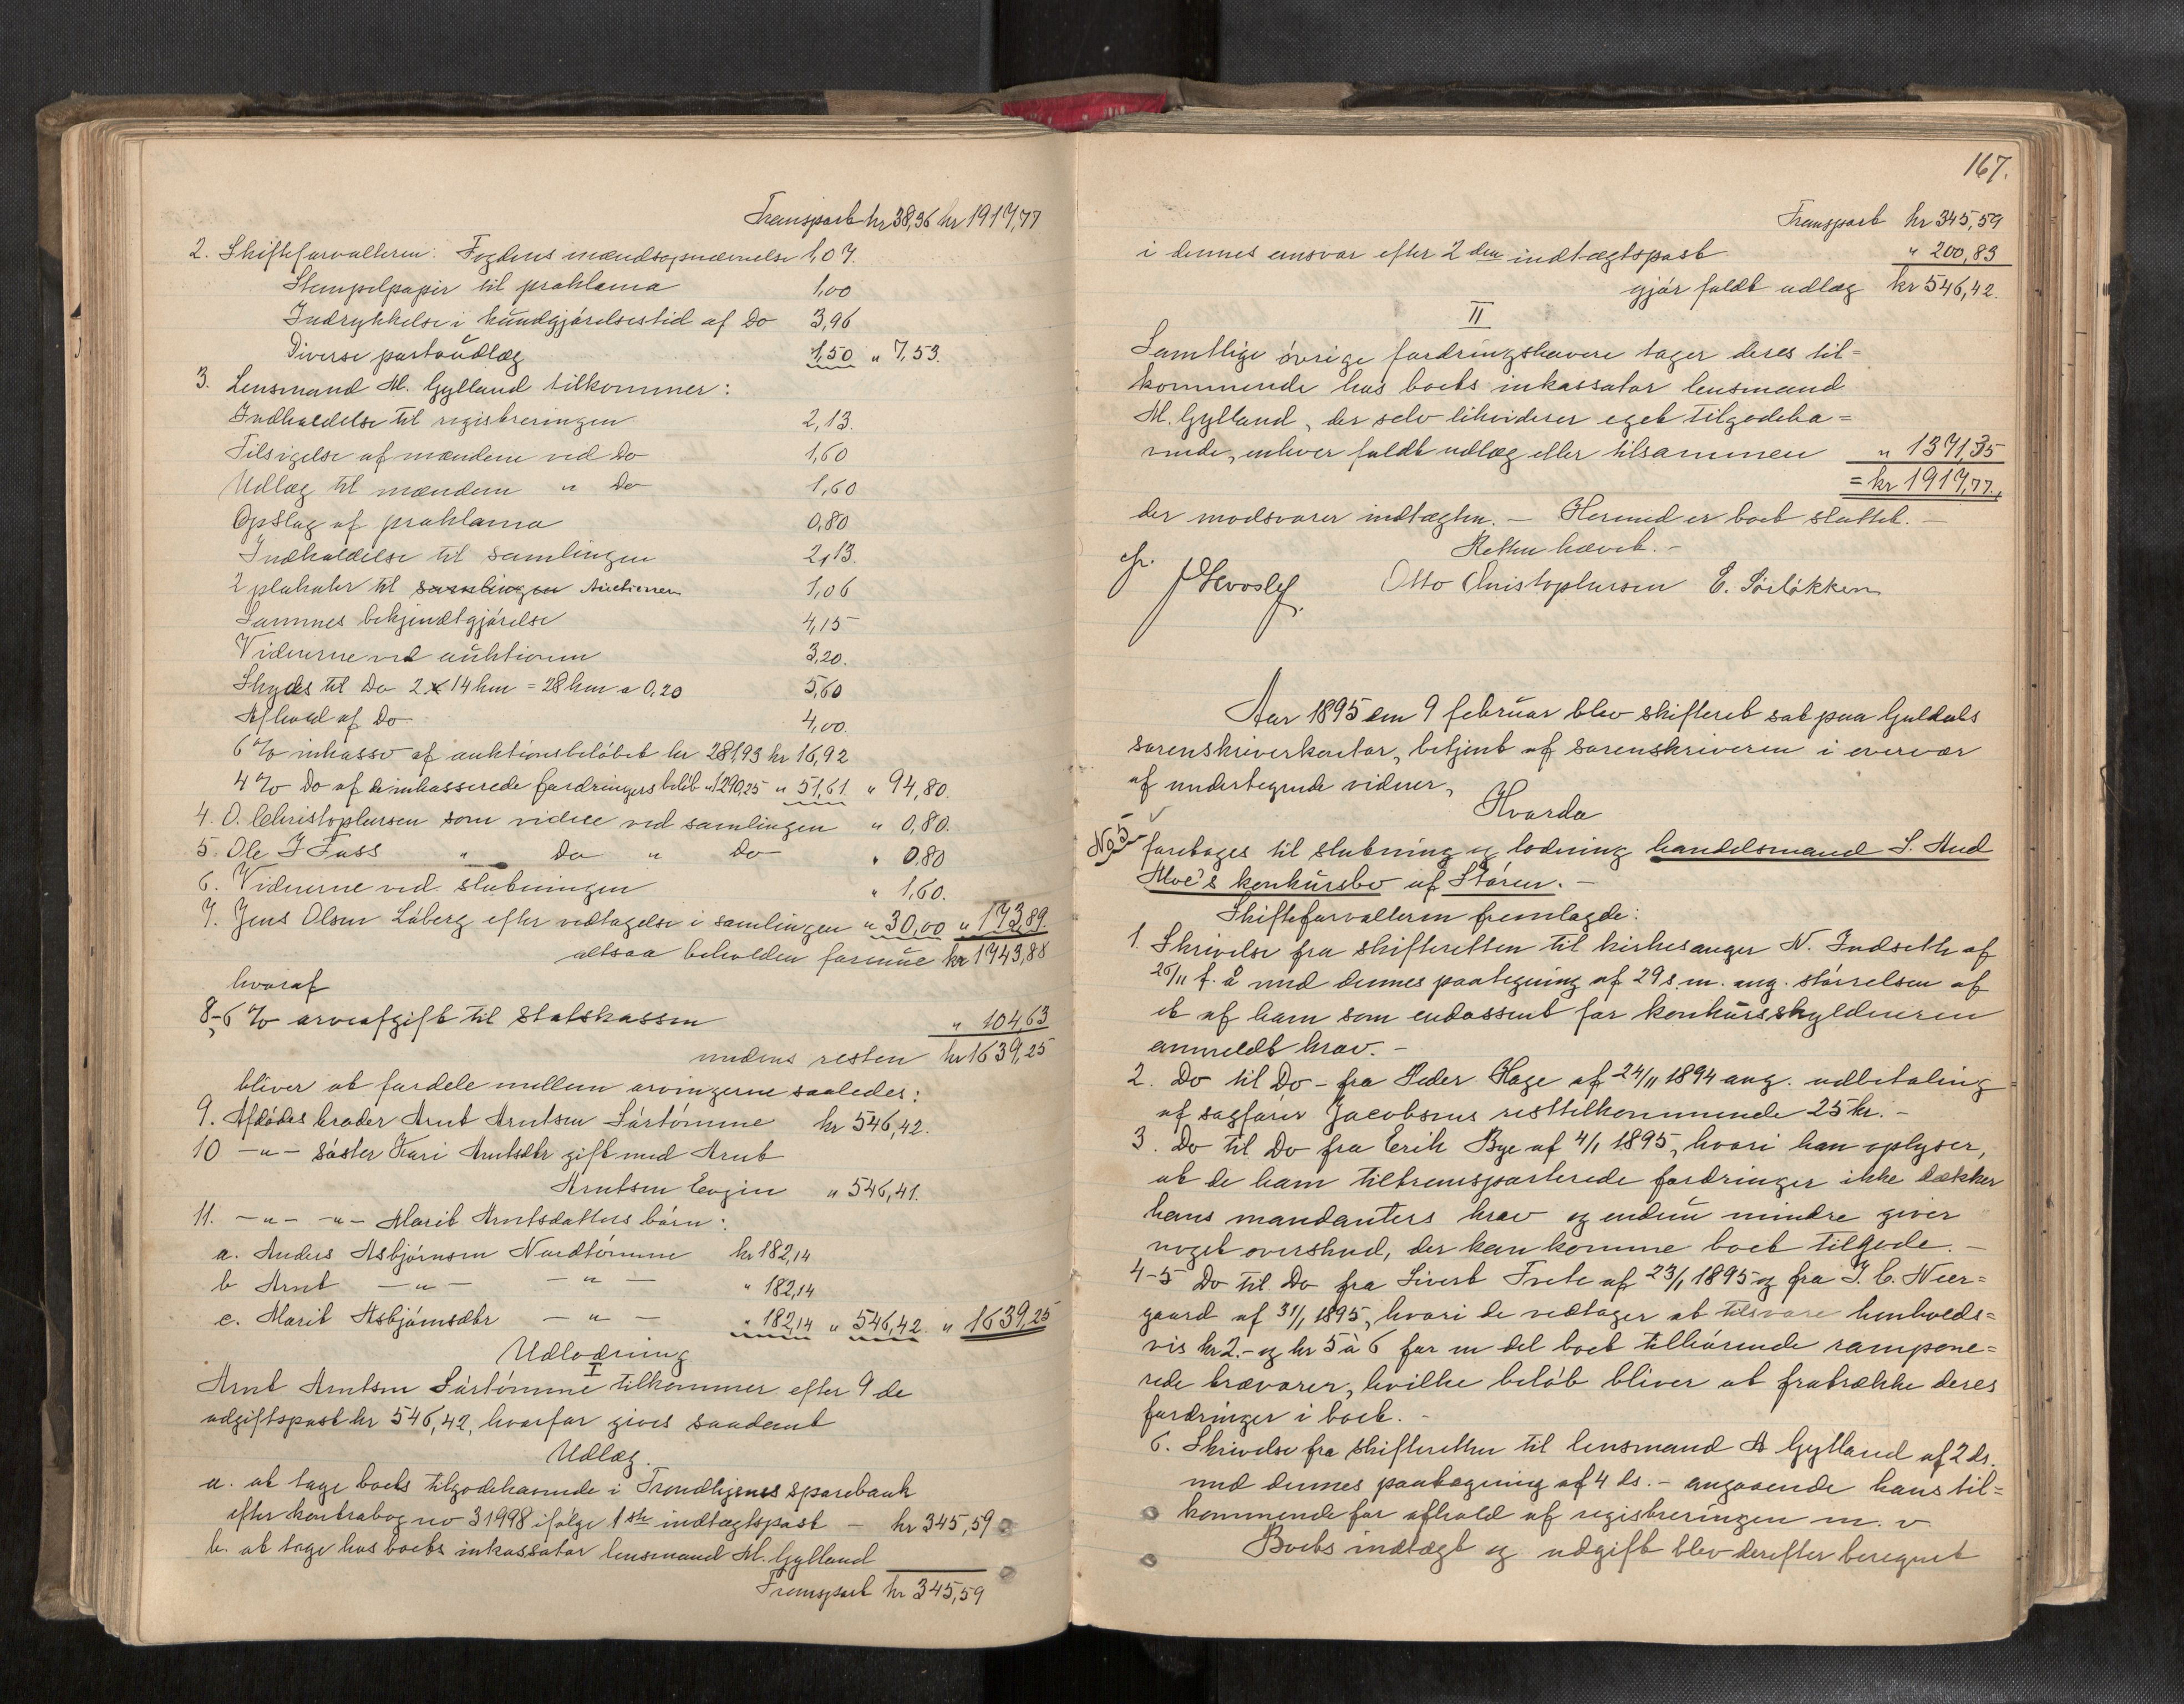 Transport kr 38,96 kr 1917,77
2. Skifteforvalteren: Fogdens mændsopnævnelse 1,07.
Stempelpapir til proklama 1,00
Indrykkelse i kundgjørelsestid af Do 3,96
Diverse portoudlæg 1,50 " 7,53.
3. Lensmand M. Gylland tilkommer:
Indkaldelse til registreringen 2,13.
Tilsigelse af mændene ved Do 1,60
Udlæg til mændene " Do 1,60
Opslag af proklama 0,80
Indkaldelse til samlingen 2,13.
2 plakater til samlingen Auctionen 1,06
Sammes bekjendtgjørelse 4,15
Vidnerne ved auktionen 3,20.
Skyds til Do 2 x 14 km = 28 km a 0,20 5,60
Afhold af Do 4,00.
6 % inkasso af auktionsbeløbet kr 281,93 kr 16,92
4 % Do af de inkasserede fordringers beløb " 1290,25 " 51,61. " 94,80.
4. O. Christophersen som vidne ved samlingen " 0,80.
5. Ole J Foss " Do " Do " 0,80
6. Vidnerne ved slutningen " 1,60.
7. Jens Olsen Løberg efter vedtagelse i samlingen " 30,00 " 173,89.
altsaa beholden formue kr 1743,88
hvoraf
8. - 6 % arveafgift til statskassen " 104,63
medens resten kr 1639,25
bliver at fordele mellem arvingerne saaledes:
9. Afdødes broder Arnt Arntsen Sørtømme kr 546,42.
10 - " - søster Kari Arntsdtr gift med Arnt
Arntsen Engin " 546,41.
11. - " - - " - Marit Arntsdatters børn:
a. Anders Asbjørnsen Nordtømme kr 182,14
b Arnt - " - - " - " 182,14
c. Marit Asbjørnsdtr - " - " 182,14 " 546,42. " 1639,25
Udlodning
I
Arnt Arntsen Sørtømme tilkommer efter 9 de
udgiftspost kr 546,42, hvorfor gives saadant
Udlæg.
a. at tage boets tilgodehavende i Trondhjems sparebank
efter kontrabog no 31998 ifølge 1ste indtægtspost - kr 345,59
b. at tage hos boets inkassator lensmand M. Gylland
Transport kr 345,59
167.
Transport kr 345,59
i dennes ansvar efter 2 den indtægtspost " 200,83
gjør fuldt udlæg kr 546,42.
II
Samtlige øvrige fordringshavere tager deres til=
kommende hos boets inkassator lensmand
M. Gylland, der selv likviderer eget tilgodeha=
vende, enhver fuldt udlæg eller tilsammen " 1371,35
= kr 1917,77.
der modsvarer indtægten. - Hermed er boet sluttet. -
Retten hævet. -
Otto Christophersen E. Sørløkken
Aar 1895 den 9 februar blev skifteret sat paa Guldals
sorenskriverkontor, betjent af sorenskriveren i overvær
af undertegnede vidner,
Hvorda
No 5 foretoges til slutning og lodning handelsmand S. Aud
Moe's konkursbo af Støren. -
Skifteforvalteren fremlagde:
1. Skrivelse fra skifteretten til kirkesanger N. Indseth af
26/11 f. å med dennes paategning af 29 s. m. ang. størrelsen af
et af ham som endossent for konkursskyldneren
anmeldt krav. -
2. Do til Do - fra Peder Hage af 24/11 1894 ang. udbetaling
af sagfører Jacobsens resttilkommende 25 kr. -
3. Do til Do fra Erik Bye af 4/1 1895, hvori han oplyser,
at de ham tiltransporterede fordringer ikke dækker
hans mandanters krav og endnu mindre giver
noget overskud, der kan komme boet tilgode. -
4-5 Do til Do fra Sivert Frete af 23/1 1895 og fra J. C. Neer=
gaard af 31/1 1895, hvori de vedtager at tilsvare henholds=
vis kr 2.- og kr 5 à 6 for en del boet tilhørende rampone=
rede trævarer, hvilke beløb bliver at fratrække deres
fordringer i boet. -
6. Skrivelse fra skifteretten til lensmand M Gylland af 2 ds.
med dennes paategning af 4 ds. - angaaende hans til=
kommende for afhold af registreringen m. v.
Boets indtægt og udgift blev derefter beregnet